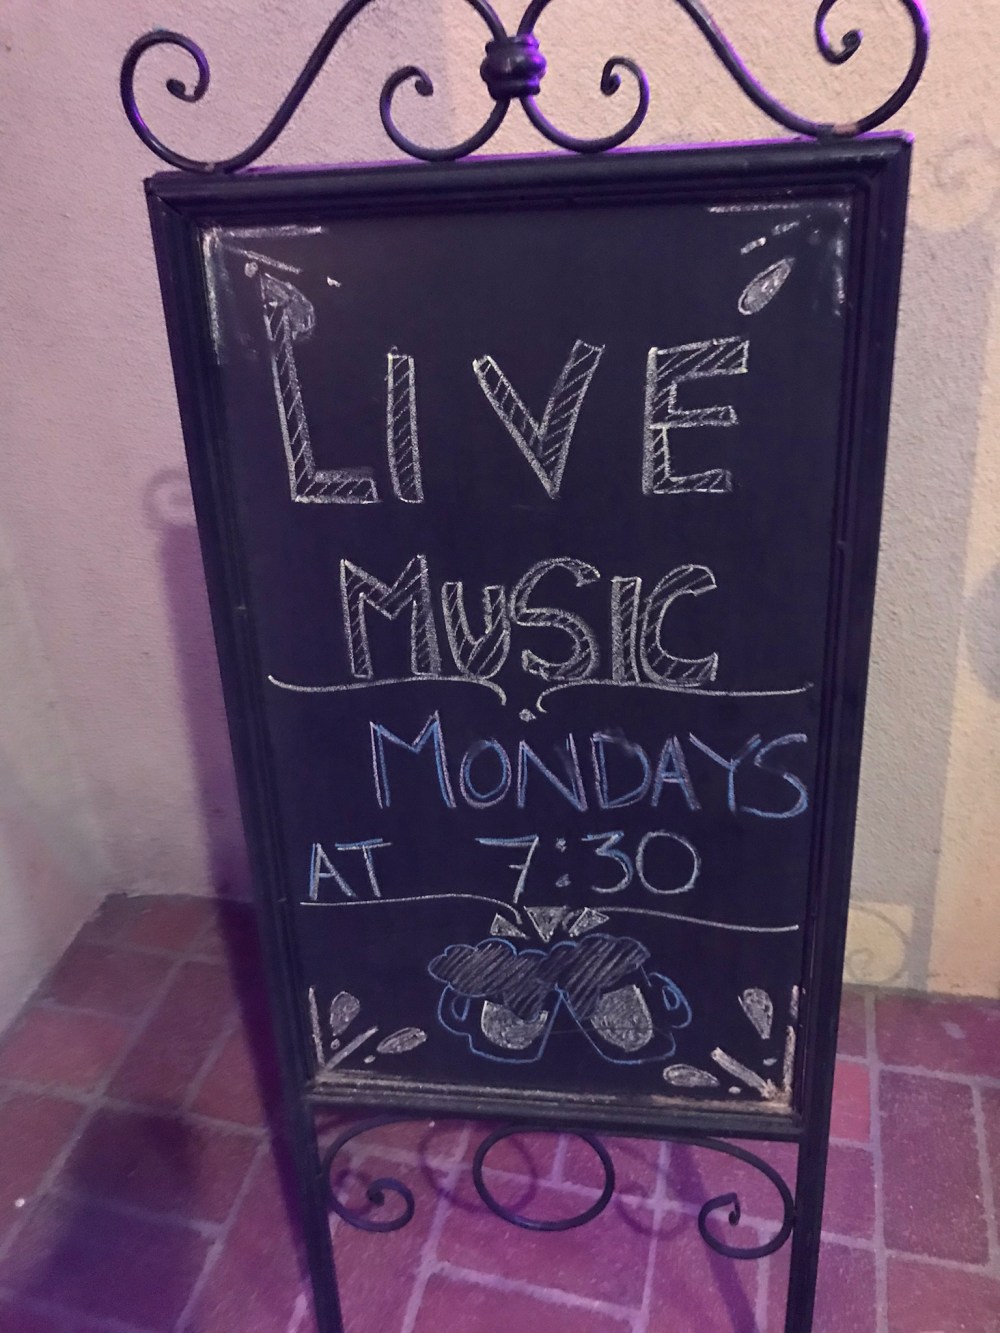 LIVE
MUSIC
MONDAYS
AT 7:30